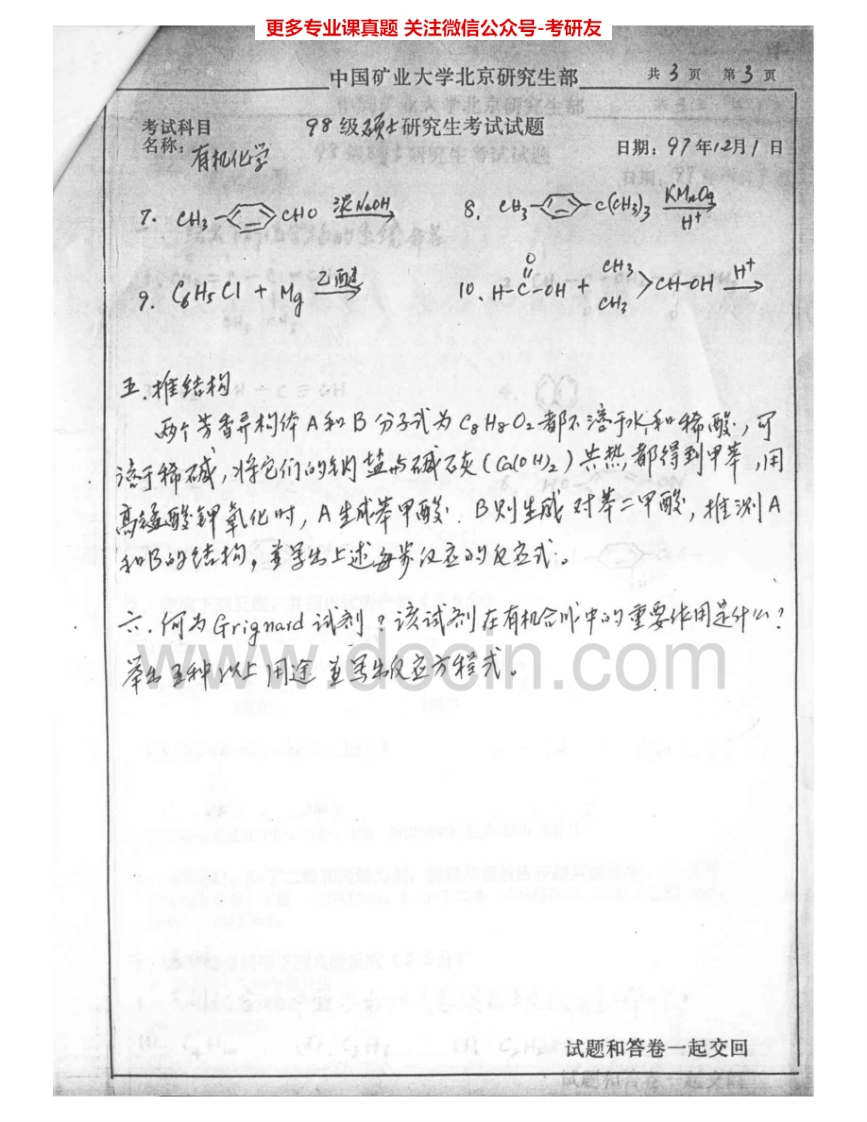 更多专业课真题 关注微信公众号-考研友
中国矿业大学北京研究生部 共 3 页 第 3 页
考试科目
名称: 有机化学
98 级硕士研究生考试试题
日期: 97 年12月1日
7. CH3- -CHO 浓NaOH
8. CH3- -C(CH3)3 KMnO4 H+
9. C6H5Cl + Mg 乙醚
10. H-C-OH + CH3 CH3 >CH-OH H+
O
五.推结构
两个芳香异构体 A 和 B 分子式为 C8H8O2 都不溶于水和稀酸,可
溶于稀碱,将它们的钠盐与碱石灰(Ca(OH)2)共热,都得到甲苯,用
高锰酸钾氧化时,A生成苯甲酸. B则生成 对苯二甲酸,推测A
和B的结构,并写出上述每步反应的反应式。
六.何为Grignard 试剂?该试剂在有机合成中的重要作用是什么?
举出五种以上用途 并写出反应方程式。
www.docin.com
试题和答卷一起交回